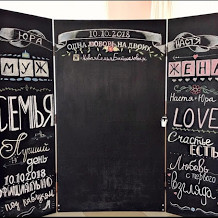 ЮРА
МУЖ
СЕМЬЯ
Лучший
день
10.10.2018
ОФИЦИАЛЬНО
под каблуком
10.10.2018
ОДНА ЛЮБОВЬ НА ДВОИХ
НАСТЯ
ЖЕНА
Настя+Юра
LOVE
Счастье
ЕСТЬ
Любовь
с первого
взгляда